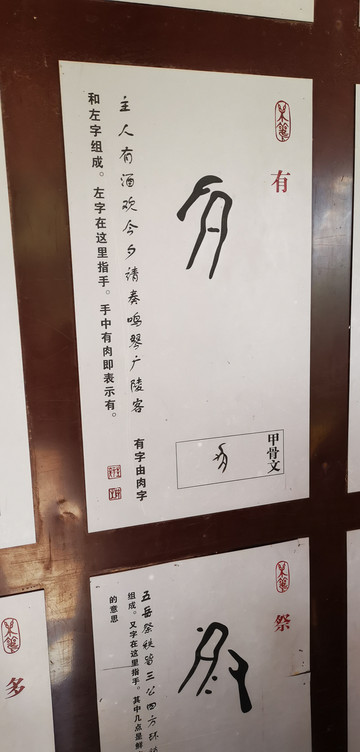 有
甲骨文
主人有酒欢今夕请奏鸣琴广陵客
有字由肉字
和左字组成。左字在这里指手。手中有肉即表示有。
祭
五岳祭秩皆三公四方环镇
组成。又字在这里指手。其中几点是鲜
的意思
多